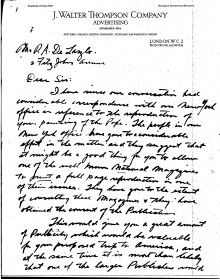 J. WALTER THOMPSON COMPANY
ADVERTISING
LONDON W.C.2
Mr. P. A. De Laszlo.
Dear Sir:
I have since our conversation had
considerable correspondence with our New York
office in reference to the reproduction of
your painting of the Pope. The people in our
New York office have gone to considerable
effort in the matter and they suggest that
it might be a good thing for you to allow
one of the small National Magazines
to print a full page reproduction in one
of their issues. They have gone to the extent
of consulting these Magazines & they have
obtained the consent of the Publication.
This would give you a great amount
of Publicity which would be valuable
for your proposed trip to America, and
at the same time it is most than likely
that one of the larger Publications would